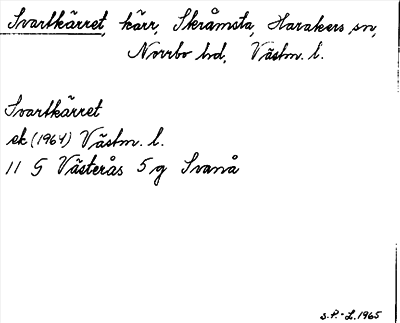 Svartkärret, kärr, Skråmsta, Harakers sn,
Norrbo hd, Västm. l.
Svartkärret
ek (1964) Västm. l.
11 G Västerås 5 g Svanå
S.P.-L. 1965